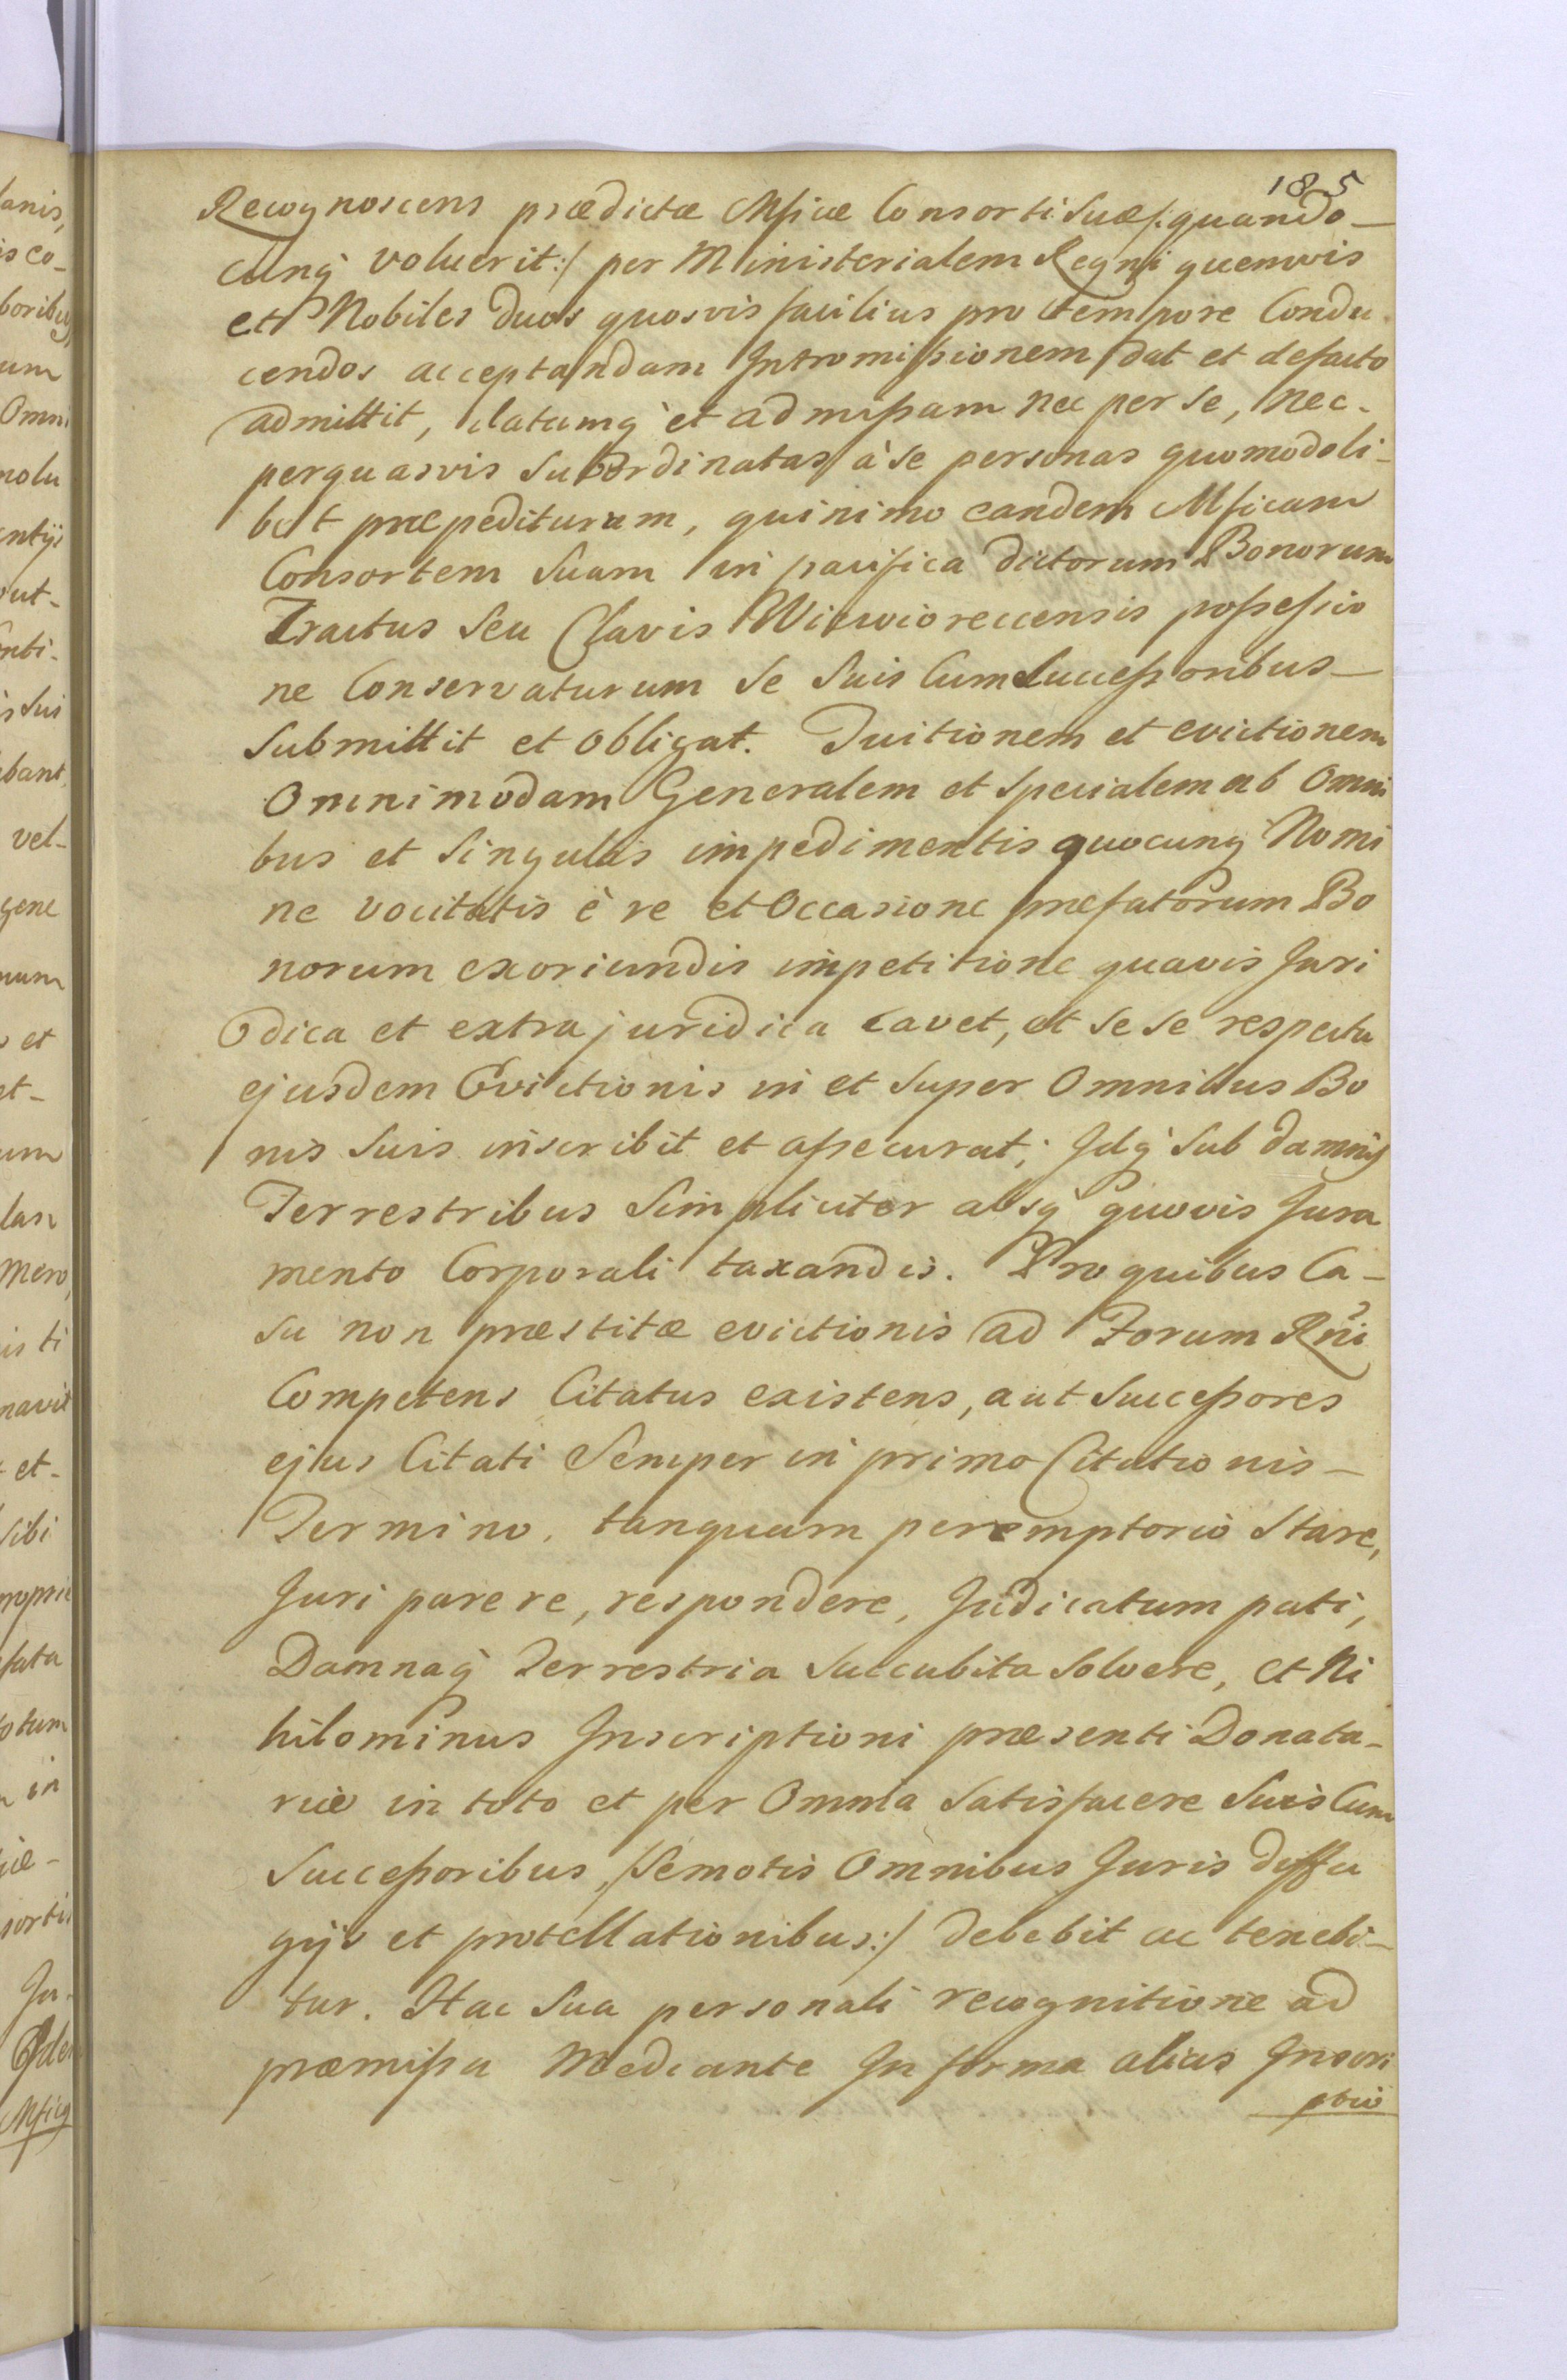 185
Recognoscens prædictæ Mficæ Consorti Suæ /: quando-
cunq voluerit :/ per Ministerialem Regni quemvis
et Nobiles duos quosvis facilius pro tempore Condu
cendos acceptandam Intromissionem dat et defacto
admittit, datamq et admissam nec per se, nec-
per quasvis Subordinatas à se personas quomodoli-
bet præpediturum, quinimo eandem Mficam
Consortem Suam in pacifica dictorum Bonorum
Tractus seu Clavis Wiewioreccensis possessio
ne Conservaturum se Suis Cum Successoribus-
Submittit et obligat. Tuitionem et evictionem
Omnimodam Generalem et specialem ab Omni
bus et Singulis impedimentis quocunq Nomi
ne vocitatis è re et Occasione præfatorum Bo
norum exoriundis impetitione quavis Juri
dica et extrajuridica cavet, et se se respectu
ejusdem Evictionis in et super Omnibus Bo
nis Suis inscribit et assecurat; Idq Sub damnis
Terrestribus Simpliciter absq quovis Jura
mento Corporali taxandis. Pro quibus Ca-
su non præstitæ evictionis ad Forum Rni
Competens Citatus existens, aut Successores
ejus Citati Semper in primo Citationis-
Termino, tanquam peremptorio Stare,
Juri parere, respondere, Judicatum pati,
Damnaq Terrestria Succubita Solvere, et Ni
hilominus Inscriptioni præsenti Donata-
riæ in toto et per Omnia Satisfacere Suis Cum
Successoribus, /Semotis Omnibus Juris diffu
gijs et protellationibus:/ debebit ac tenebi-
tur. Hac Sua personali recognitione ad
præmissa Mediante In forma alias Inscri
ptio